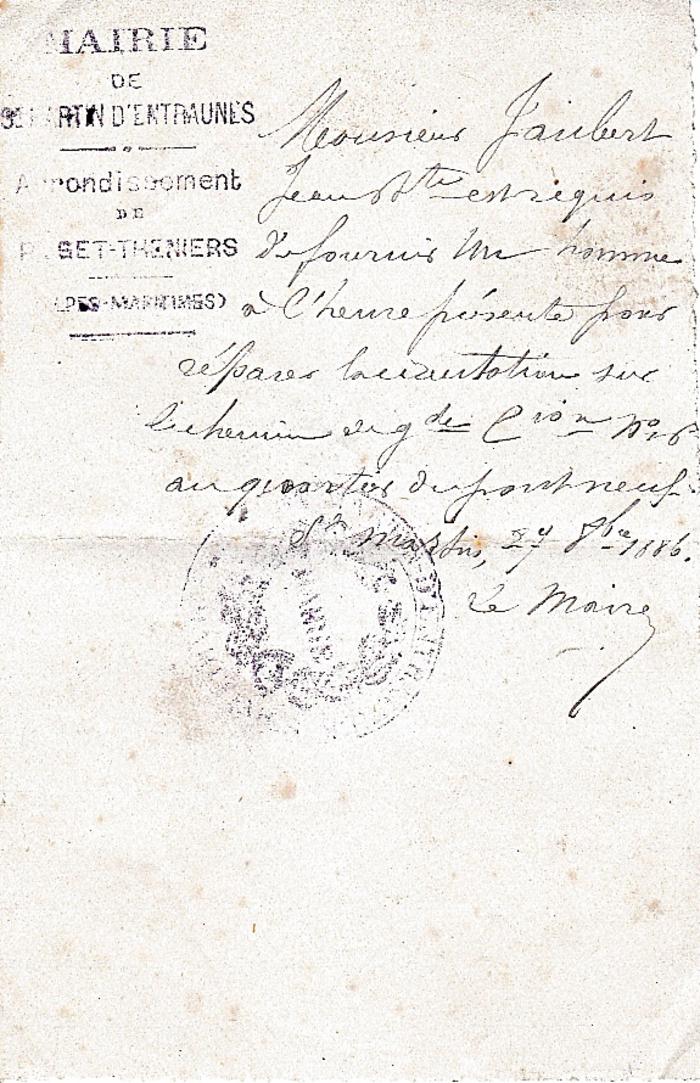 MAIRIE
DE
ST MARTIN D'ENTRAUNES
Arrondissement
DE
PUGET-THENIERS
(ALPES-MARITIMES)
Monsieur Jaubert
Jean Bte est requis
de fournir un homme
à l'heure présente pour
réparer la circulation sur
le chemin de gde Cion No 6
au quartier du pont neuf.
St Martin, 27 8bre 1886.
Le Maire
MAIRIE